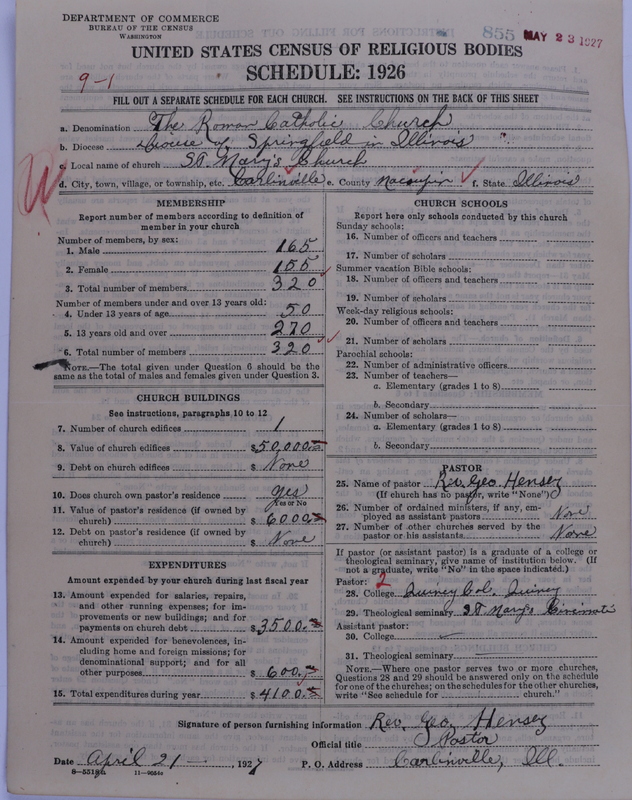 DEPARTMENT OF COMMERCE
BUREAU OF THE CENSUS
WASHINGTON
855 MAY 23 1927
UNITED STATES CENSUS OF RELIGIOUS BODIES
SCHEDULE: 1926
9-1
FILL OUT A SEPARATE SCHEDULE FOR EACH CHURCH. SEE INSTRUCTIONS ON THE BACK OF THIS SHEET
a. Denomination The Roman Catholic Church
b. Diocese Diocese of Springfield in Illinois
c. Local name of church St. Mary's Church
d. City, town, village, or township, etc. Carlinville e. County Macoupin f. State Illinois
MEMBERSHIP
Report number of members according to definition of
member in your church
Number of members, by sex:
1. Male 165
2. Female 155
3. Total number of members 320
Number of members under and over 13 years old:
4. Under 13 years of age 50
5. 13 years old and over 270
6. Total number of members 320
NOTE.—The total given under Question 6 should be
same as the total of males and females given under Question 3.
CHURCH BUILDINGS
See instructions, paragraphs 10 to 12
7. Number of church edifices 1
8. Value of church edifices $50,000
9. Debt on church edifices $ None
10. Does church own pastor's residence yes
Yes or No
11. Value of pastor's residence (if owned by
church) $ 6000
12. Debt on pastor's residence (if owned by
church) $ None
EXPENDITURES
Amount expended by your church during last fiscal year
13. Amount expended for salaries, repairs,
and other running expenses; for im-
provements or new buildings; and for
payments on church debt $3500.
14. Amount expended for benevolences, in-
cluding home and foreign missions; for
denominational support; and for all
other purposes $ 600.
15. Total expenditures during year $4100.
CHURCH SCHOOLS
Report here only schools conducted by this church
Sunday schools:
16. Number of officers and teachers
17. Number of scholars
Summer vacation Bible schools:
18. Number of officers and teachers
19. Number of scholars
Week-day religious schools:
20. Number of officers and teachers
21. Number of scholars
Parochial schools:
22. Number of administrative officers
23. Number of teachers—
a. Elementary (grades 1 to 8)
b. Secondary
24. Number of scholars—
a. Elementary (grades 1 to 8)
b. Secondary
PASTOR
25. Name of pastor Rev. Geo. Hensey
(If church has no pastor, write "None")
26. Number of ordained ministers, if any, em-
ployed as assistant pastors None
27. Number of other churches served by the
pastor or his assistants None
If pastor (or assistant pastor) is a graduate of a college or
theological seminary, give name of institution below. (If
not a graduate, write "No" in the space indicated.)
Pastor: 2
28. College Quincy Col. Quincy
29. Theological seminary St Mary's Cincinnati
Assistant pastor:
30. College
31. Theological seminary
NOTE.—Where one pastor serves two or more churches,
Questions 28 and 29 should be answered only on the schedule
for one of the churches; on the schedules for the other churches,
write "See schedule for church."
Signature of person furnishing information Rev. Geo. Hensey
Official title Pastor
Date April 21 — , 1927 P. O. Address Carlinville, Ill.
8—5518a 11—9054c